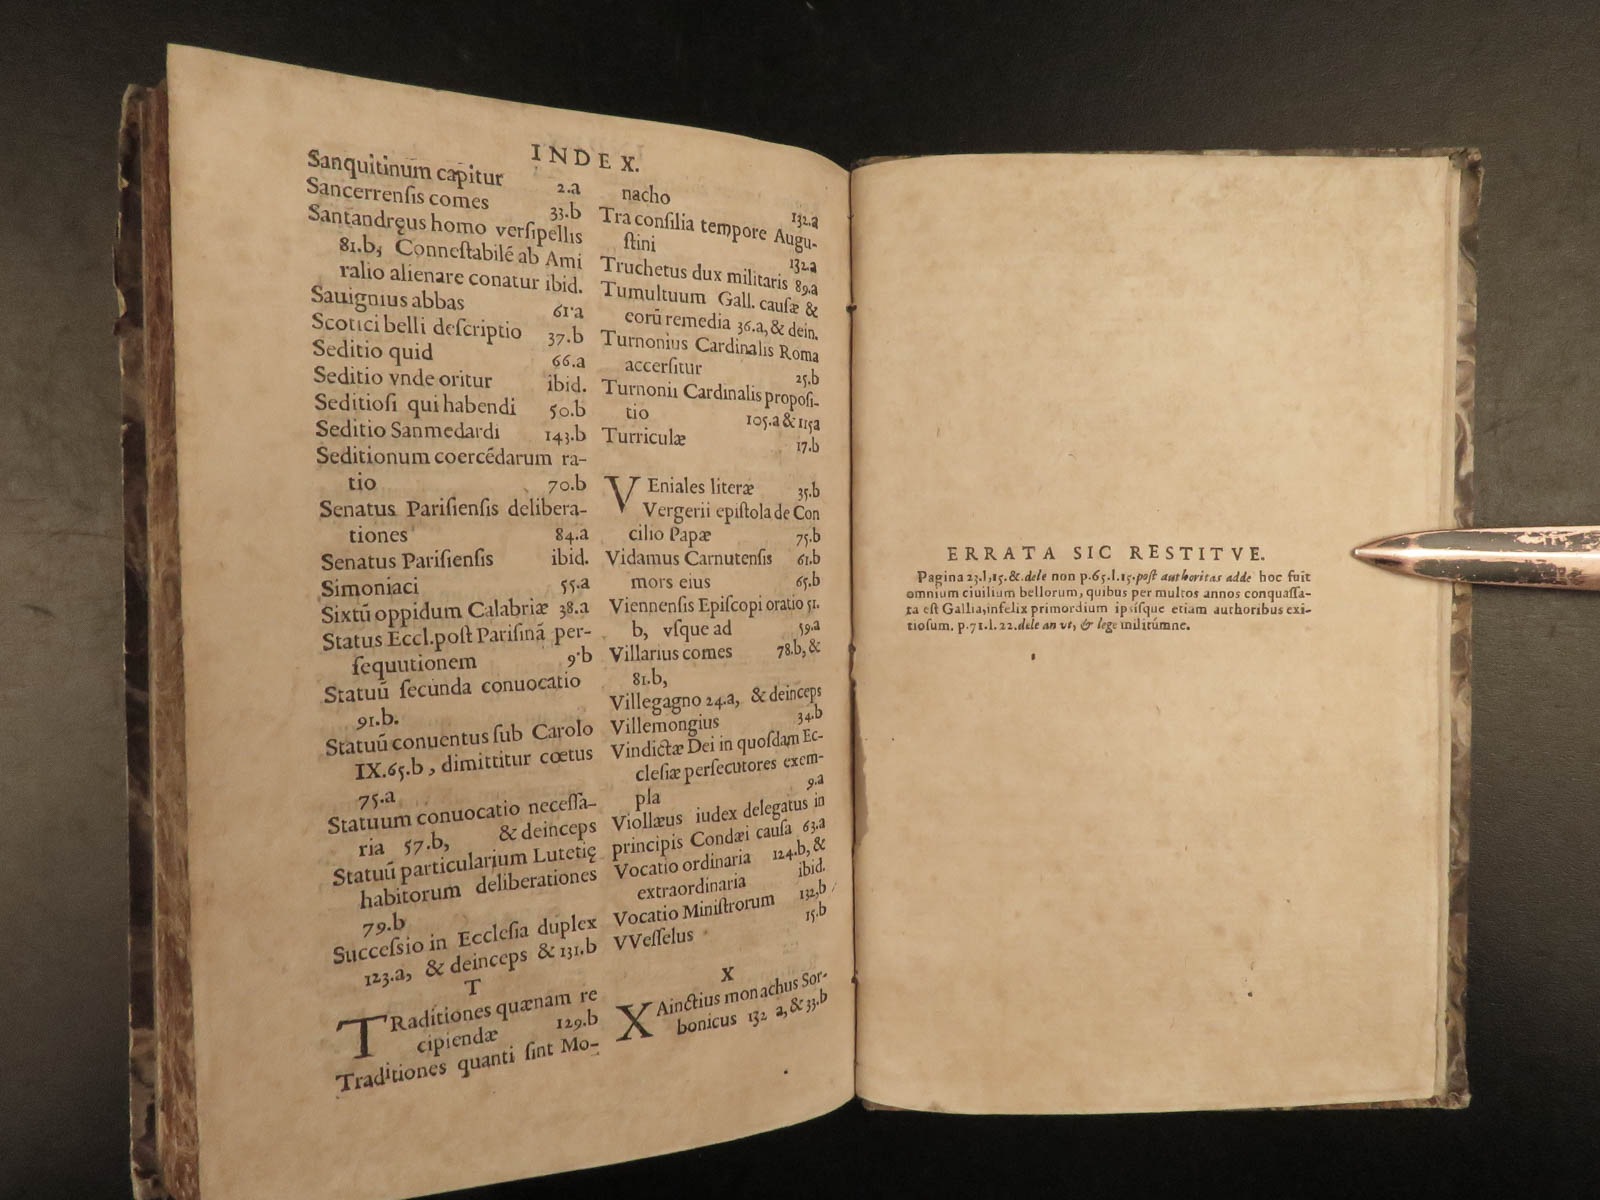 INDEX.
Sanquitinum capitur 2.a
Sancerrenſis comes 33.b
Santandręus homo verſipellis
81.b, Conneſtabilé ab Ami
ralio alienare conatur ibid.
Sauignius abbas 61.a
Scotici belli deſcriptio 37.b
Seditio quid 66.a
Seditio vnde oritur ibid.
Seditioſi qui habendi 50.b
Seditio Sanmedardi 143.b
Seditionum coercẽdarum ra-
tio 70.b
Senatus Pariſienſis delibera-
tiones 84.a
Senatus Pariſienſis ibid.
Simoniaci 55.a
Sixtũ oppidum Calabriæ 38.a
Status Eccl.poſt Pariſinã per-
ſequutionem 9.b
Statuũ ſecunda conuocatio
91.b.
Statuũ conuentus ſub Carolo
IX.65.b, dimittitur cœtus
75.a
Statuum conuocatio neceſſa-
ria 57.b, & deinceps
Statuũ particularium Lutetię
habitorum deliberationes
79.b
Succeſsio in Eccleſia duplex
123.a, & deinceps & 131.b
T
TRaditiones quænam re
cipiendæ 129.b
Traditiones quanti ſint Mo-
nacho 132.a
Tra conſilia tempore Augu-
ſtini 132.a
Truchetus dux militaris 89.a
Tumultuum Gall. cauſæ &
eorũ remedia 36.a, & dein.
Turnonius Cardinalis Roma
accerſitur 25.b
Turnonii Cardinalis propoſi-
tio 105.a & 115a
Turriculæ 17.b
VEniales literæ 35.b
Vergerii epiſtola de Con
cilio Papæ 75.b
Vidamus Carnutenſis 61.b
mors eius 65.b
Viennenſis Epiſcopi oratio 51.
b, vſque ad 59.a
Villarius comes 78.b, &
81.b,
Villegagno 24.a, & deinceps
Villemongius 34.b
Vindictæ Dei in quoſdam Ec-
cleſiæ perſecutores exem-
pla 9.a
Viollæus iudex delegatus in
principis Condæi cauſa 63.a
Vocatio ordinaria 124.b, &
extraordinaria ibid.
Vocatio Miniſtrorum 132,b
VVeſſelus 15.b
X
XAinctius monachus Sor-
bonicus 132 a, & 33.b
ERRATA SIC RESTITVE.
Pagina 23.l,15.&.dele non p.65.l.15.poſt authoritas adde hoc fuit
omnium ciuilium bellorum, quibus per multos annos conquaſſa-
ta eſt Gallia,infelix primordium ipſiſque etiam authoribus exi-
tioſum. p.71.l. 22.dele an vt, & lege militúmne.